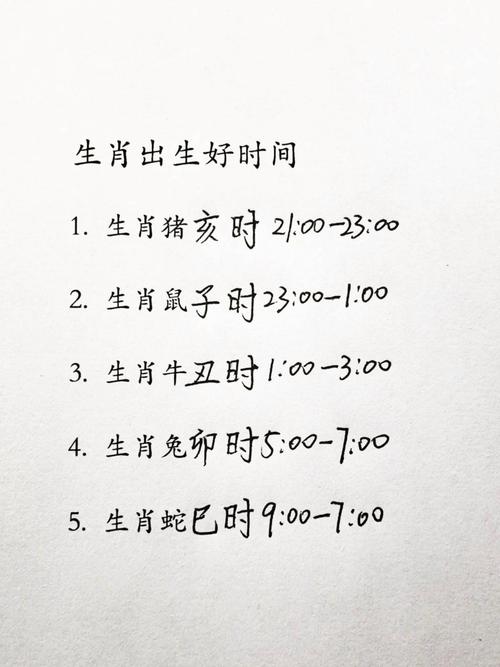 生肖出生好时间
1. 生肖猪亥时 21:00-23:00
2. 生肖鼠子时 23:00-1:00
3. 生肖牛丑时 1:00-3:00
4. 生肖兔卯时 5:00-7:00
5. 生肖蛇巳时 9:00-7:00